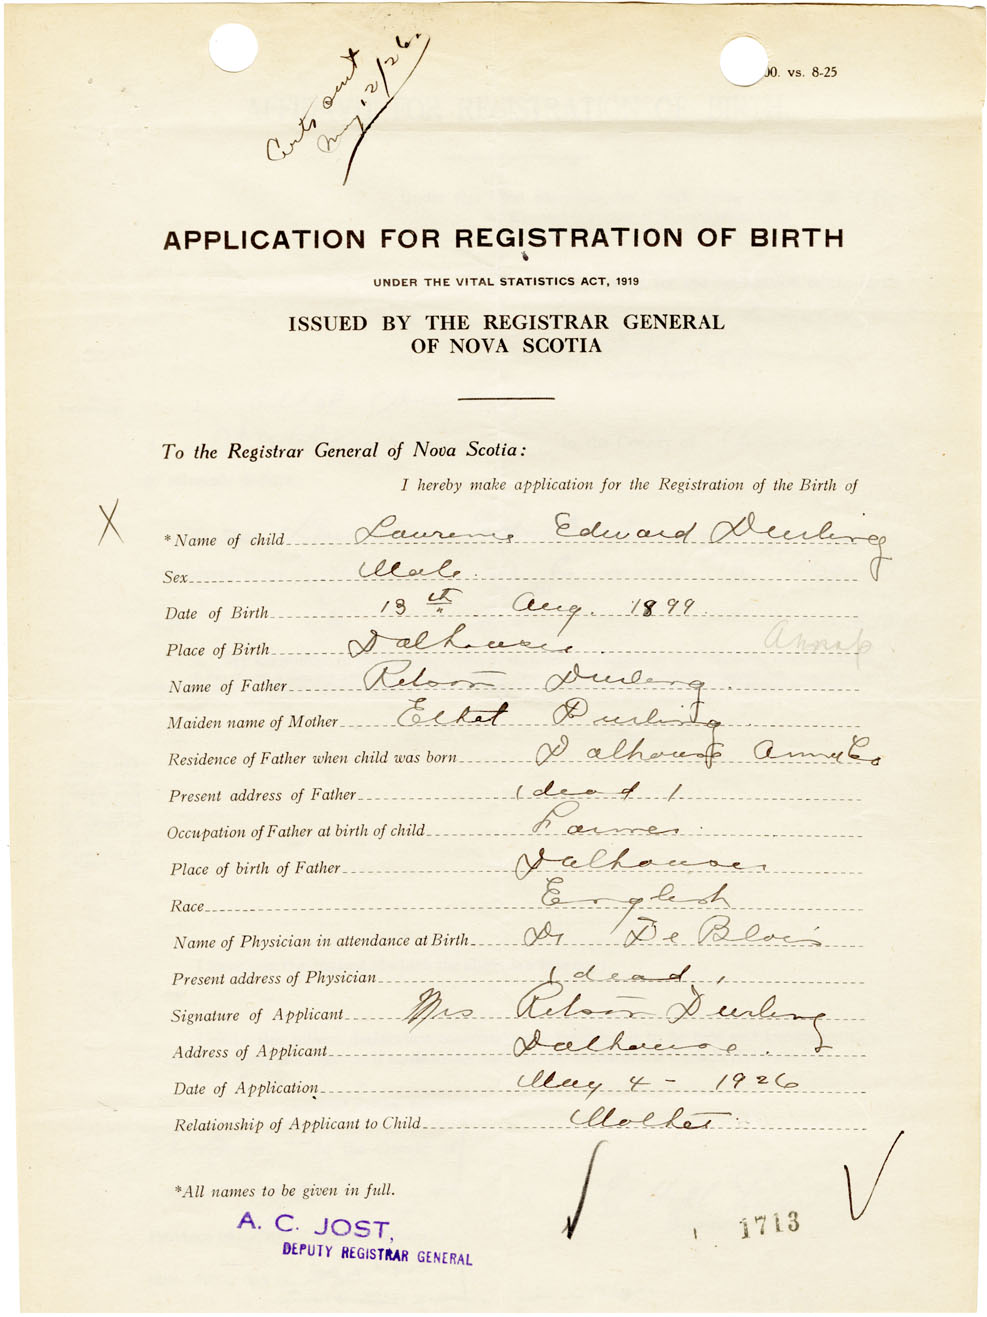 Certs sent
May 12/26.
00. vs. 8-25
APPLICATION FOR REGISTRATION OF BIRTH
UNDER THE VITAL STATISTICS ACT, 1919
ISSUED BY THE REGISTRAR GENERAL
OF NOVA SCOTIA
To the Registrar General of Nova Scotia:
I hereby make application for the Registration of the Birth of
X
*Name of child Laurence Edward Durling
Sex Male.
Date of Birth 13th Aug. 1899.
Place of Birth Dalhousie. Annap.
Name of Father Durling.
Maiden name of Mother Ethel Durling
Residence of Father when child was born Dalhousie Anna Co
Present address of Father (dead)
Occupation of Father at birth of child Farmer
Place of birth of Father Dalhousie
Race English
Name of Physician in attendance at Birth Dr De Blois
Present address of Physician (dead)
Signature of Applicant Mrs Durling
Address of Applicant Dalhousie.
Date of Application May 4 - 1926
Relationship of Applicant to Child Mother
*All names to be given in full.
A. C. JOST,
DEPUTY REGISTRAR GENERAL
1713